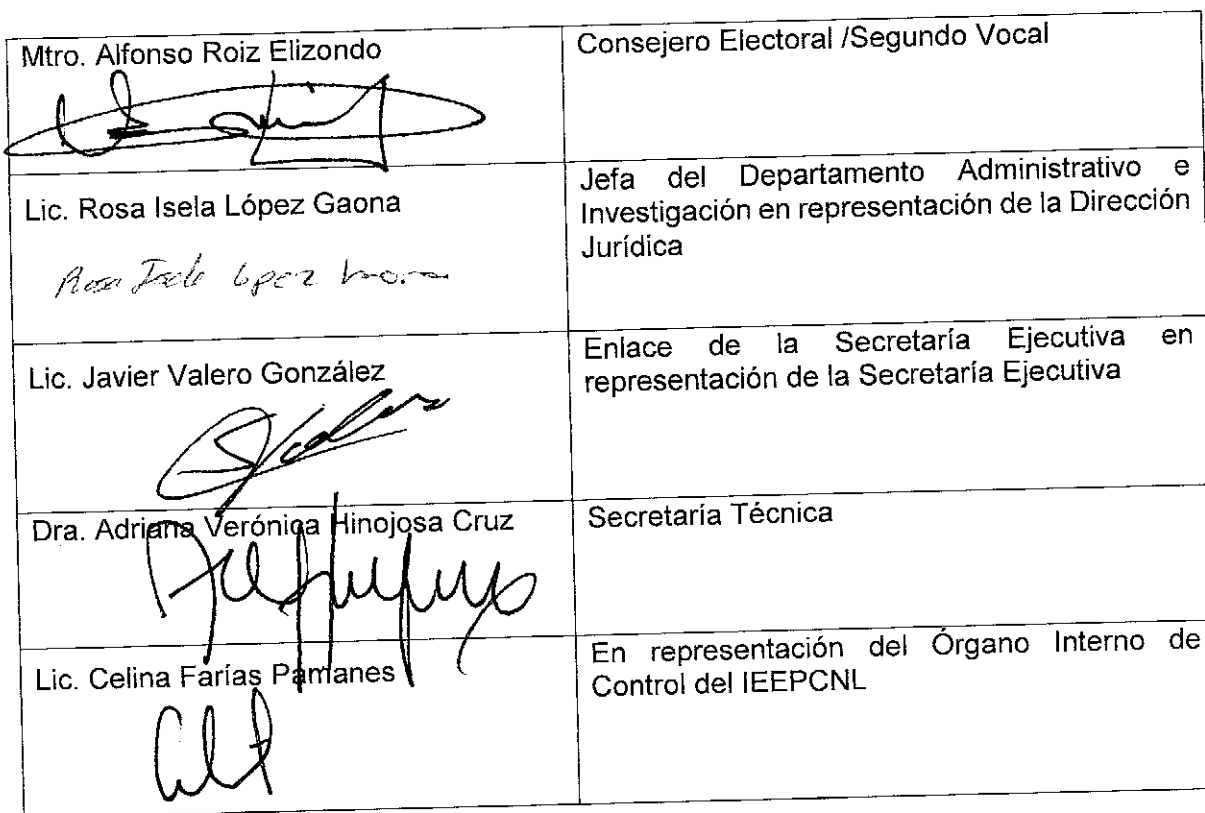 Mtro. Alfonso Roiz Elizondo
Consejero Electoral /Segundo Vocal
Lic. Rosa Isela López Gaona
Jefa del Departamento Administrativo e
Investigación en representación de la Dirección
Jurídica
Rosa Isela López
Lic. Javier Valero González
Enlace de la Secretaría Ejecutiva en
representación de la Secretaría Ejecutiva
Dra. Adriana Verónica Hinojosa Cruz
Secretaría Técnica
Lic. Celina Farías Pamanes
En representación del Órgano Interno de
Control del IEEPCNL